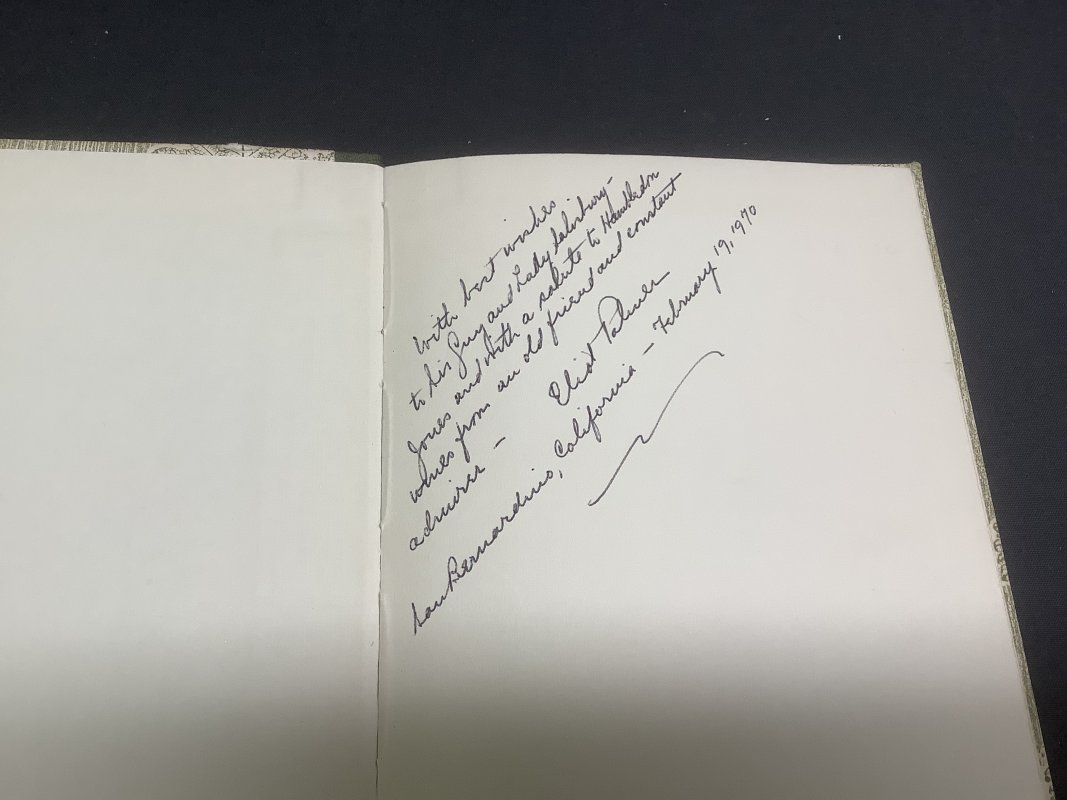 With best wishes
to Sir Guy and Lady Salisbury-
Jones and with a salute to Hambledon
wines from an old friend and constant
admirer -
Eliot Palmer
San Bernardino, California - February 19, 1970